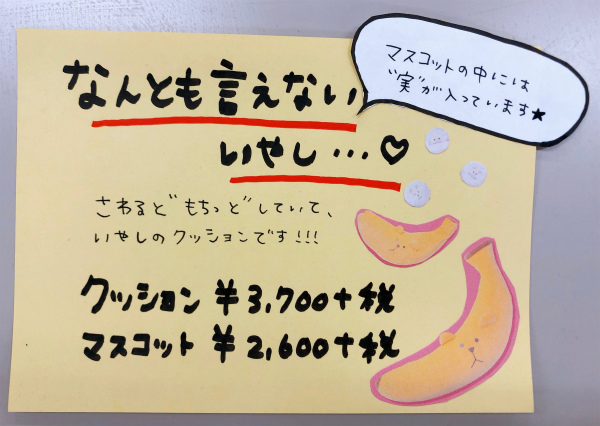 マスコットの中には
"実"が入っています★
なんとも言えない
いやし…♡
さわると"もちっと"していて、
いやしのクッションです!!!
クッション ¥3,700+税
マスコット ¥2,600+税